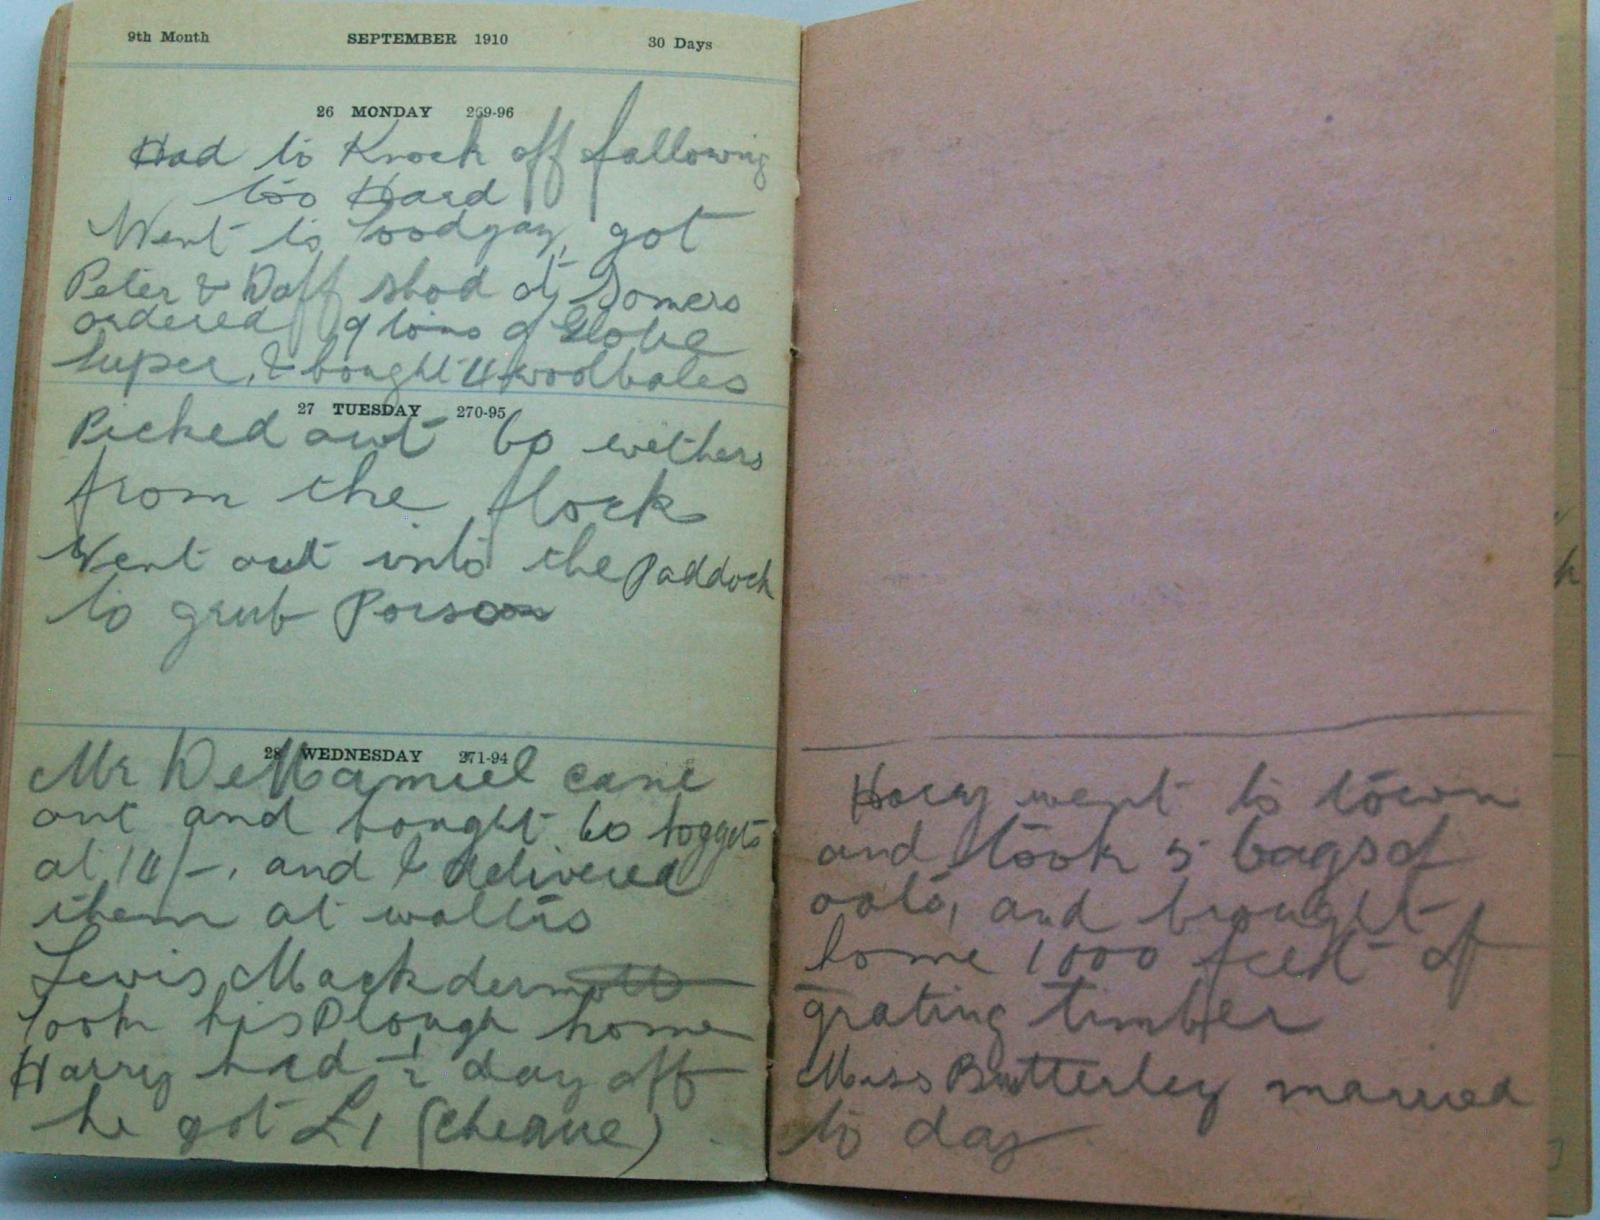 9th Month SEPTEMBER 1910 30 Days
26 MONDAY 269-96
Had to Knock off fallowing
too Hard
Went to Toodyay, got
Peter & Daff shod at Somers
ordered 9 tons of Globe
Super, & bought 4 woolbales
27 TUESDAY 270-95
Picked out 60 wethers
from the flock
Went out into the Paddock
to grub Poison
28 WEDNESDAY 271-94
Mr DeHamiel came
out and bought 60 hoggets
at 14/-, and I delivered
them at
Lewis Mackdermott
Took his Plough home
Harry had ½ day off
he got £1 (cheque)
Harry went to town
and took 5 bags of
oats, and brought
home 1000 feet of
grating timber
Miss Butterley married
to day